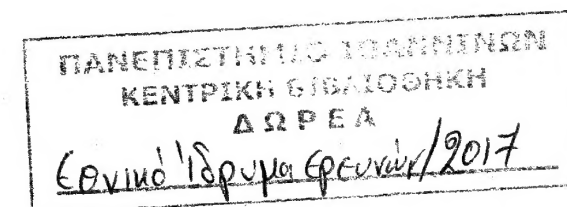 ΠΑΝΕΠΙΣΤΗΜΙΟ ΙΩΑΝΝΙΝΩΝ
ΚΕΝΤΡΙΚΗ ΒΙΒΛΙΟΘΗΚΗ
ΔΩΡΕΑ
Εθνικό Ίδρυμα Ερευνών/2017